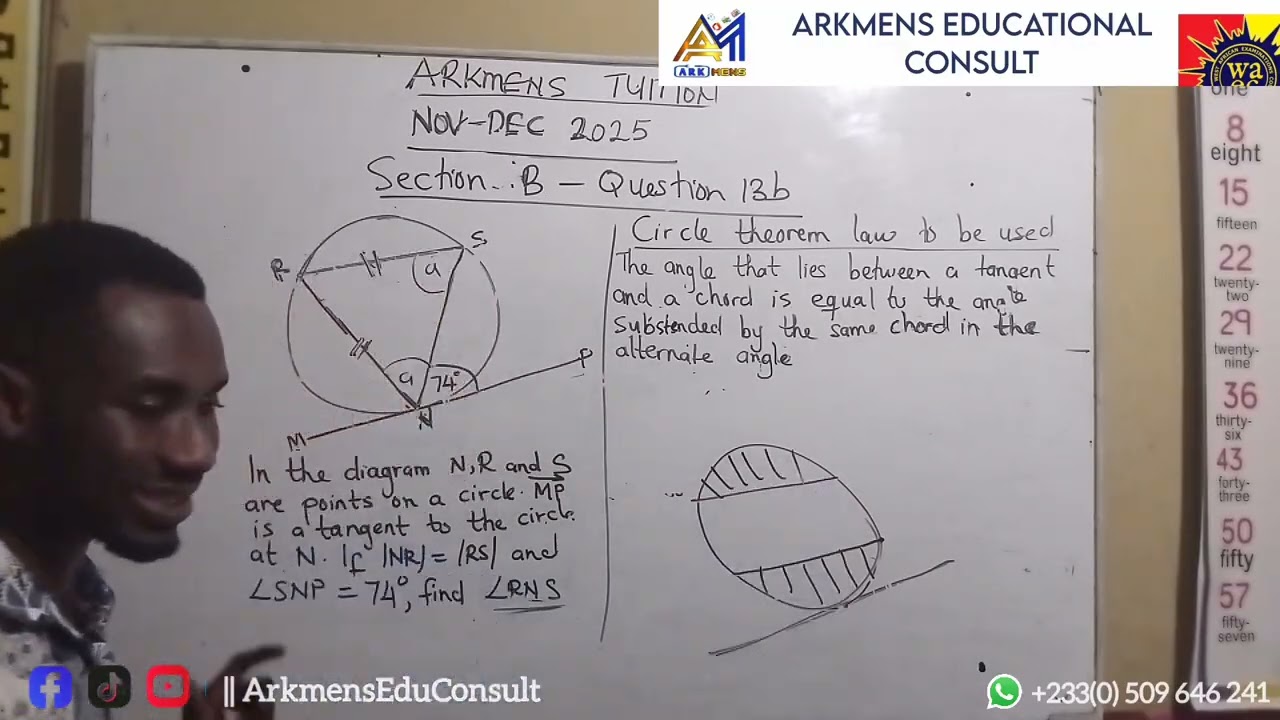 ARKMENS EDUCATIONAL
CONSULT
AM
ARK MENS
WEST AFRICAN EXAMINATIONS
wa
ARKMENS TUITION
NOV-DEC 2025
Section.:B - Question 13b
R
S
a
a
74°
P
N
M
In the diagram N,R and S
are points on a circle. MP
is a tangent to the circle.
at N. If |NR| = |RS| and
∠SNP = 74°, find ∠RNS
Circle theorem law to be used
The angle that lies between a tangent
and a chord is equal to the angle
Substended by the same chord in the
alternate angle
one
8
eight
15
fifteen
22
twenty-
two
29
twenty-
nine
36
thirty-
six
43
forty-
three
50
fifty
57
fifty-
seven
|| ArkmensEduConsult
+233(0) 509 646 241